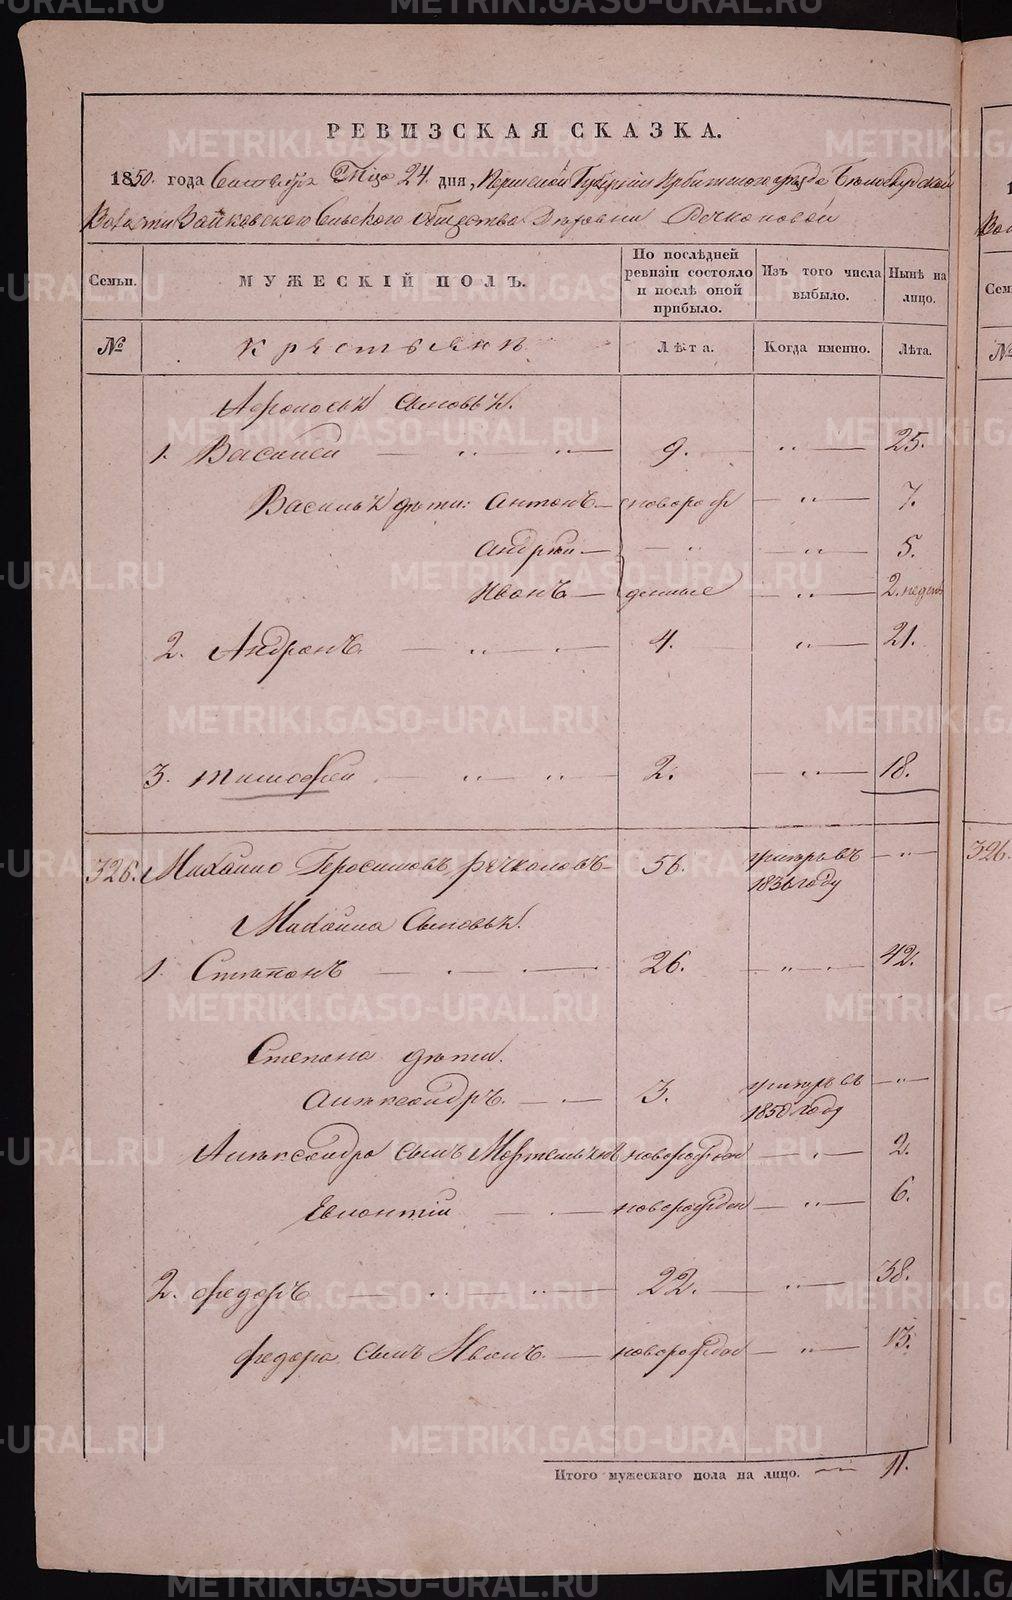 РЕВИЗСКАЯ СКАЗКА.
1850. года Сентября Мца 24 дня, Пермской Губернии Ирбитскаго уезда Белослудской
Волости Зайковского Сельского общества Деревни Речкаловой
Семьи. МУЖЕСКІЙ ПОЛЪ. По послѣдней ревизіи состояло и послѣ оной прибыло. Изъ того числа выбыло. Нынѣ на лицо.
№ Крестьянъ Лѣта. Когда именно. Лѣта.
Сыновья.
1. Василей — " — " — 9. — " — 25.
Василья дѣти: Антонъ — новорож — " — 7.
Андрей — — " — " — 5.
Иванъ — денные — " — 2. недел
2. Андронъ. — " — " — 4. " — 21.
3. Тимофей — " — " — 2. — " — 18.
326. Михайло Герасимовъ Речкаловъ — 56. умеръ въ 1836 году — " —
Михайла Сыновья.
1. Степанъ — . — . — 26. — " — 42.
Степана дѣти.
Александръ. — . — 3. умеръ въ 1850 году — " —
Александра сынъ новорожден — . — 2.
новорожден — " — 6.
2. Федоръ — " — " — 22. " — 38.
Федора сынъ Иванъ. — новорожден — " — 13.
Итого мужескаго пола на лицо. — 11.
326.